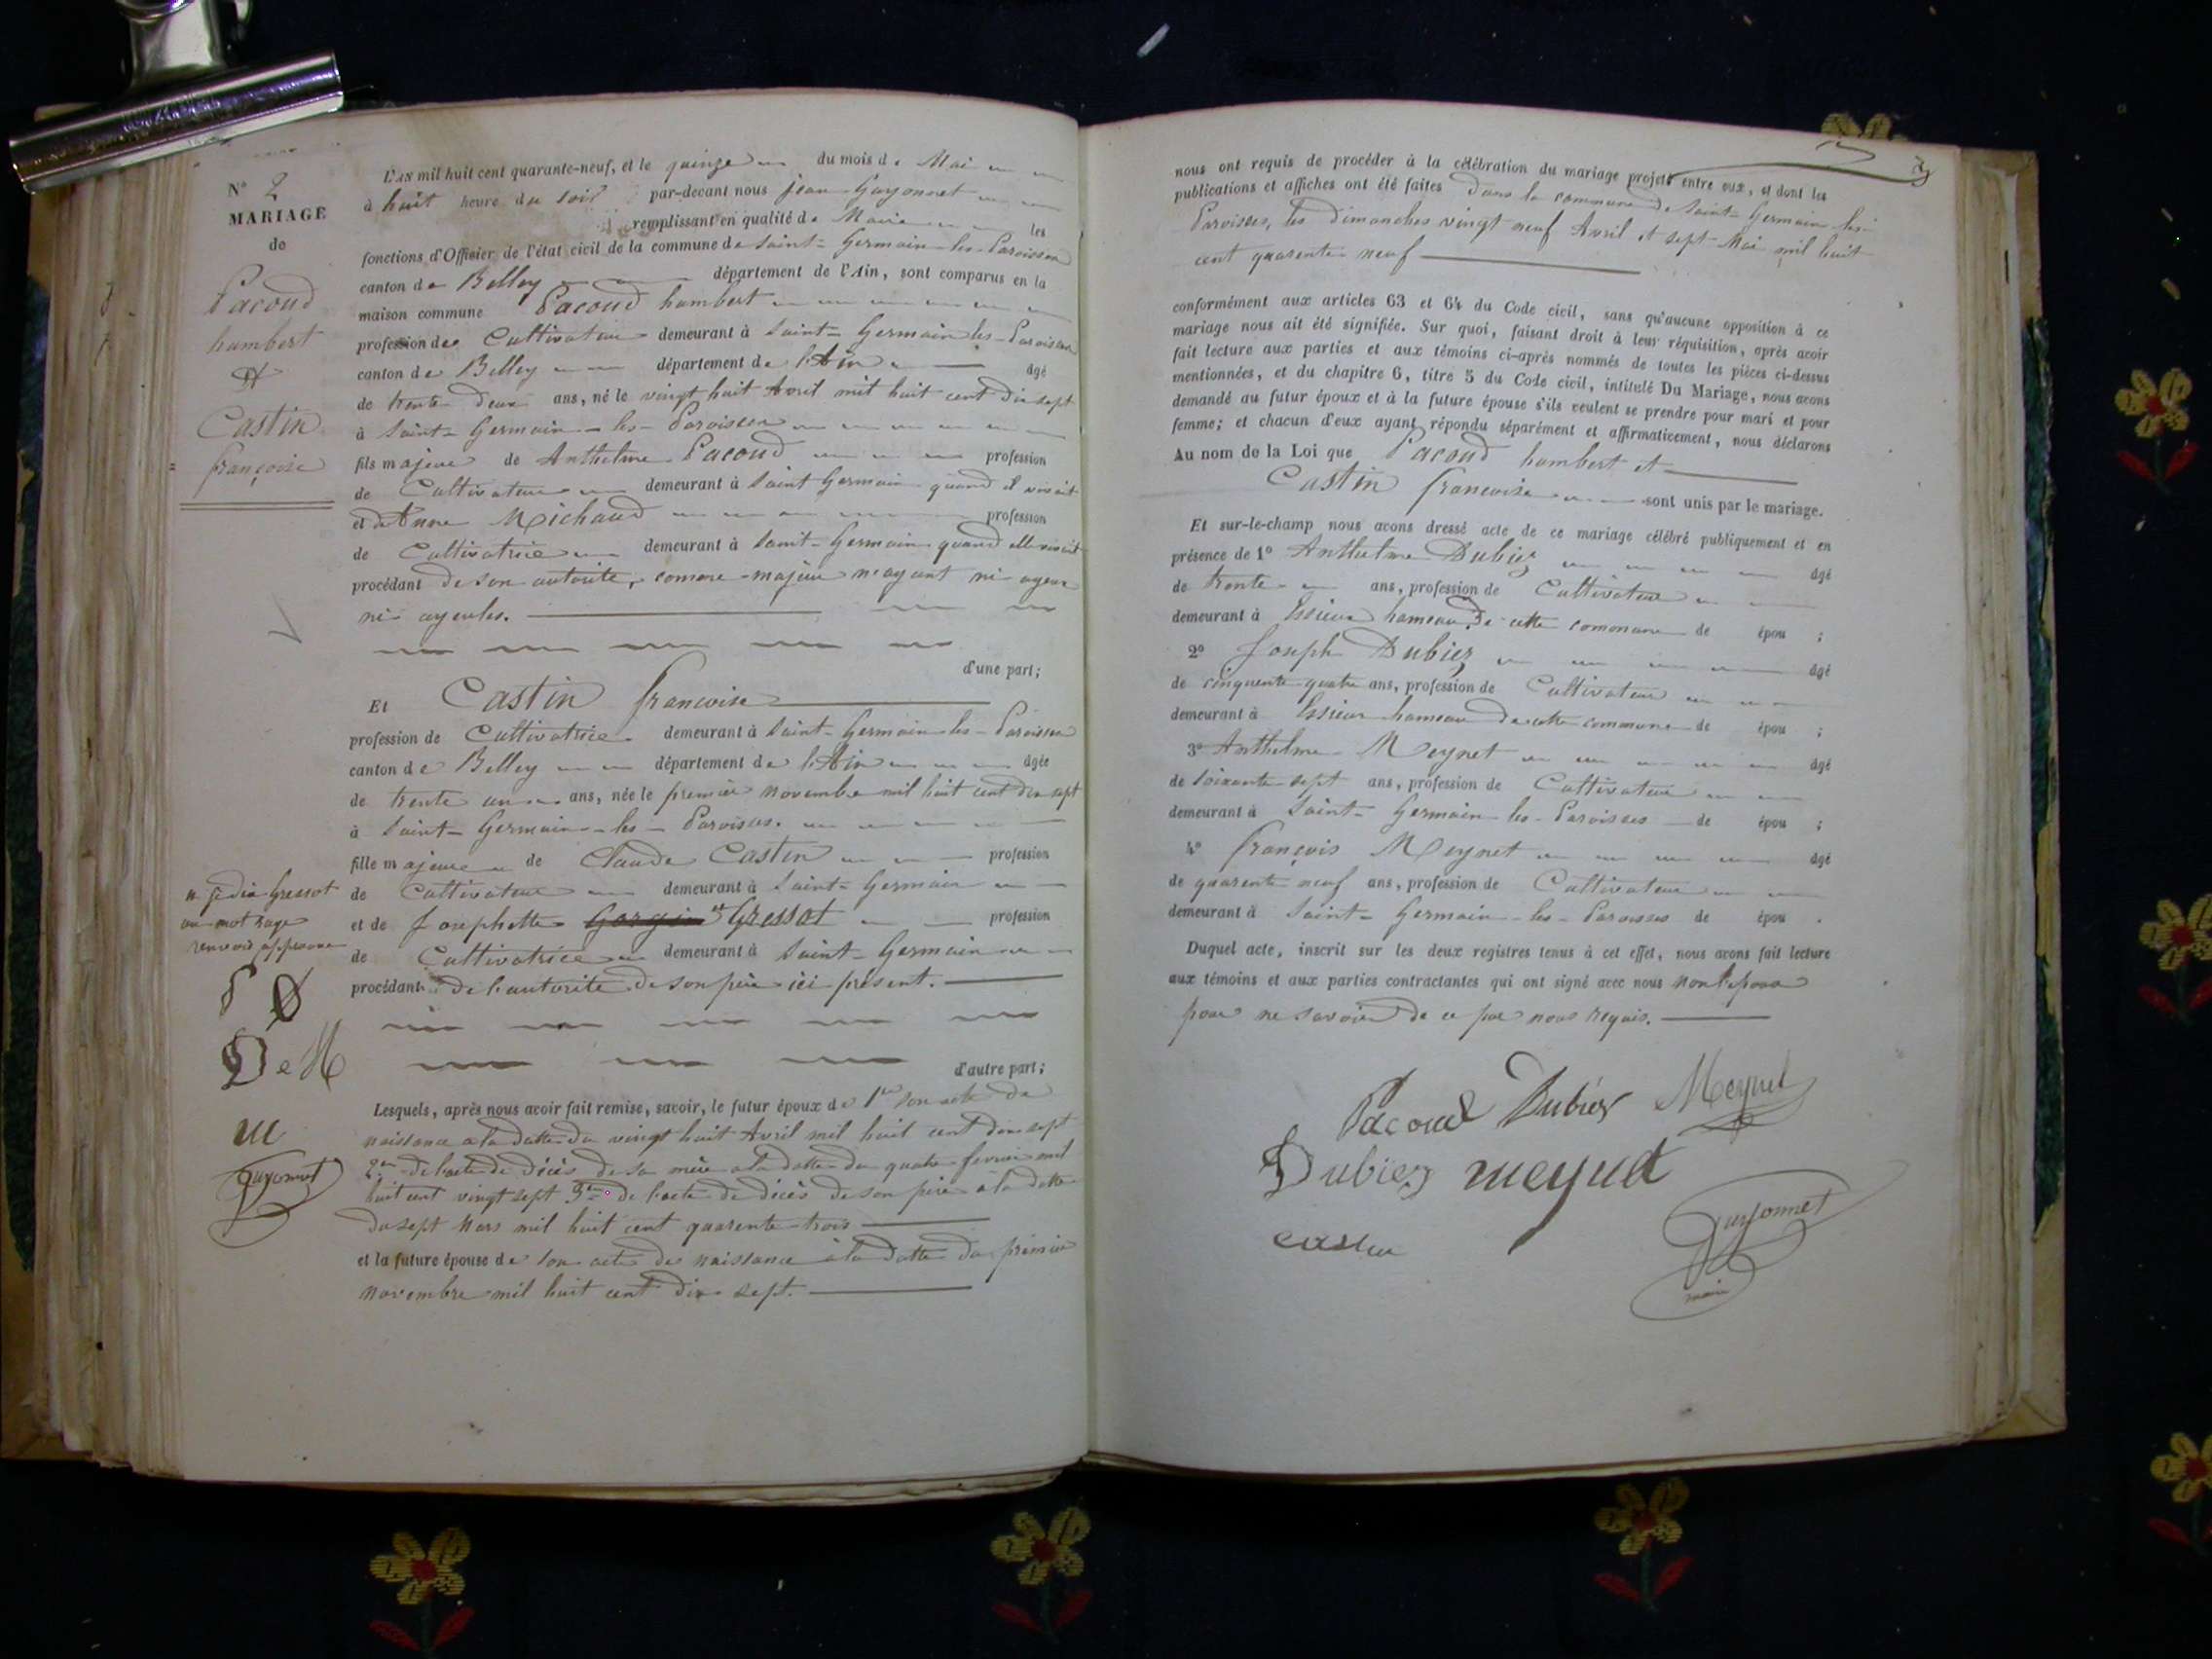 N° 2
MARIAGE
de
Pacoud
humbert
et
Castin
françoise
L'AN mil huit cent quarante-neuf, et le quinze du mois de Mai
à huit heure du soir par-devant nous jean Guyonnet
remplissant en qualité de Maire les
fonctions d'Officier de l'état civil de la commune de Saint-Germain-les-Paroisses
canton de Belley département de l'Ain, sont comparus en la
maison commune Pacoud humbert
profession de Cultivateur demeurant à Saint-Germain les-Paroisses
canton de Belley département de l'Ain âgé
de trente deux ans, né le vingt huit Avril mil huit cent dix sept
à Saint-Germain-les-Paroisses
fils majeur de Anthelme Pacoud profession
de Cultivateur demeurant à Saint Germain quand il vivait
et de Anne Michaud profession
de Cultivatrice demeurant à Saint-Germain quand elle vivait
procédant de son autorité, comme majeur n'ayant ni ayeux
ni ayeules.
d'une part;
Et Castin francoise
profession de Cultivatrice demeurant à Saint-Germain-les-Paroisses
canton de Belley département de l'Ain âgée
de trente un ans, née le premier novembre mil huit cent dix sept
à Saint-Germain-les-Paroisses.
fille majeure de Claude Castin profession
de Cultivateur demeurant à Saint-Germain
et de Josephette Gressot profession
de Cultivatrice demeurant à Saint-Germain
procédant de l'autorité de son père ici présent.
d'autre part;
Gressot
un mot
renvoi approuvé
P D
D e M
m
guyonnet
Lesquels, après nous avoir fait remise, savoir, le futur époux de 1er son acte de
naissance a la datte du vingt huit Avril mil huit cent dix sept
2em de l'acte de décès de sa mère a la datte du quatre fevrier mil
huit cent vingt sept 3em de l'acte de décès de son père a la datte
du sept Mars mil huit cent quarente trois
et la future épouse de son acte de naissance à la datte du premier
novembre mil huit cent dix sept.
nous ont requis de procéder à la célébration du mariage projeté entre eux, et dont les
publications et affiches ont été faites dans la commune de Saint-Germain-les-
Paroisses, les dimanches vingt neuf Avril et sept Mai mil huit
cent quarente neuf
conformément aux articles 63 et 64 du Code civil, sans qu'aucune opposition à ce
mariage nous ait été signifiée. Sur quoi, faisant droit à leur réquisition, après avoir
fait lecture aux parties et aux témoins ci-après nommés de toutes les pièces ci-dessus
mentionnées, et du chapitre 6, titre 5 du Code civil, intitulé Du Mariage, nous avons
demandé au futur époux et à la future épouse s'ils veulent se prendre pour mari et pour
femme; et chacun d'eux ayant répondu séparément et affirmativement, nous déclarons
Au nom de la Loi que Pacoud humbert et
Castin francoise sont unis par le mariage.
Et sur-le-champ nous avons dressé acte de ce mariage célébré publiquement et en
présence de 1° Anthelme Dubiez âgé
de trente ans, profession de Cultivateur
demeurant à Essieux hameau de cette commune de épou ;
2° Joseph Dubiez âgé
de cinquente quatre ans, profession de Cultivateur
demeurant à Essieux hameau de cette commune de épou ;
3° Anthelme Meynet âgé
de soixante sept ans, profession de Cultivateur
demeurant à Saint-Germain-les-Paroisses de épou ;
4° françois Meynet âgé
de quarente neuf ans, profession de Cultivateur
demeurant à Saint-Germain-les-Paroisses de épou .
Duquel acte, inscrit sur les deux registres tenus à cet effet, nous avons fait lecture
aux témoins et aux parties contractantes qui ont signé avec nous
pour ne savoir de ce par nous requis.
Pacoud Dubiez Meynet
Dubiez meynet
castin guyonnet
maire